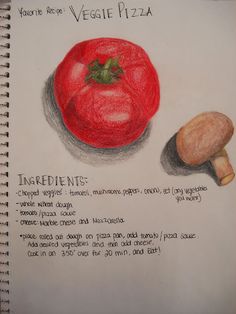 Favorite Recipe: VEGGIE PIZZA
INGREDIENTS:
- Chopped veggies: tomatoes, mushrooms, peppers, onions, etc (any vegetable
you want)
- whole wheat dough
- tomato/pizza sauce
- cheese: Marble cheese and Mozzarella
* place rolled out dough on pizza pan, add tomato/pizza sauce
Add desired vegetables and then add cheese,
Cook in an 350° oven for 20 min, and Eat!)